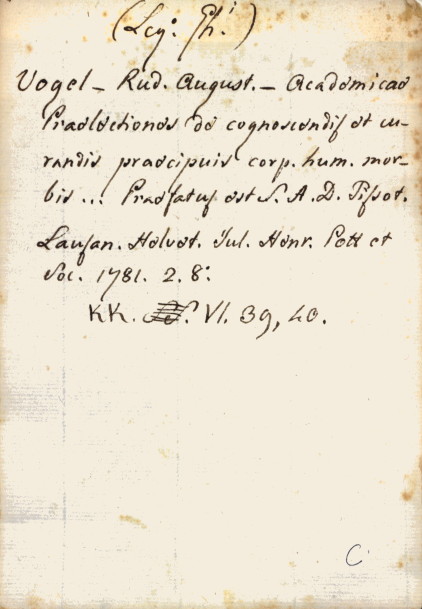 (Leg: Th:)
Vogel – Rud. August. – Academicae
Praelectiones de cognoscendis et cu-
randis praecipuis corp. hum. mor-
bis ... Praefatus est S. A. D. Tissot.
Lausan. Helvet. Jul. Henr. Pott et
Soc. 1781. 2. 8:
KK. VI. 39, 40.
C